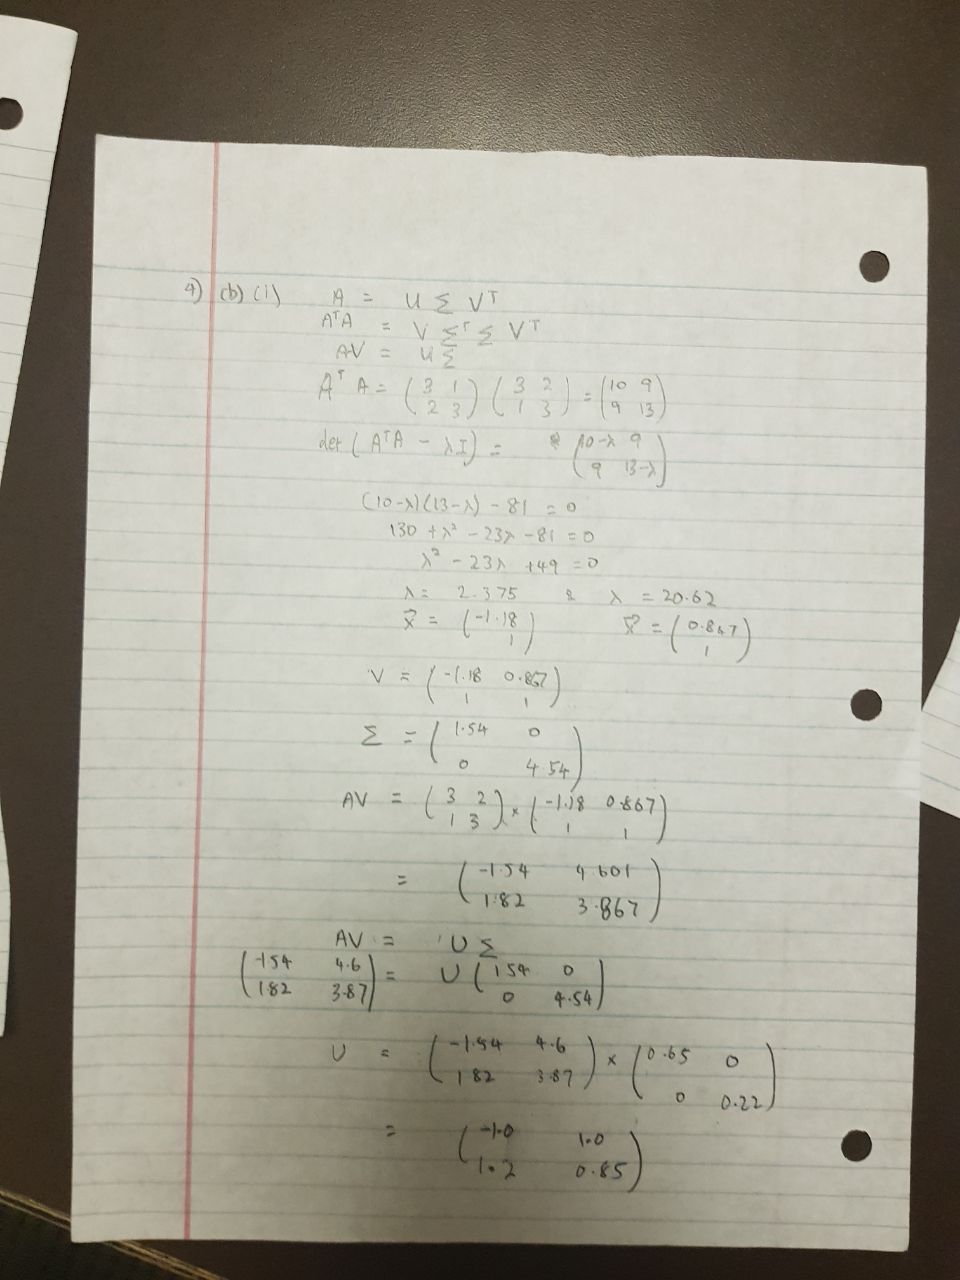 4) (b) (i) A = U Σ Vᵀ
AᵀA = V Σᵀ Σ Vᵀ
AV = UΣ
Aᵀ A = (3 1; 2 3) (3 2; 1 3) = (10 9; 9 13)
det (AᵀA - λI) = (10-λ 9; 9 13-λ)
(10-λ)(13-λ) - 81 = 0
130 + λ² - 23λ - 81 = 0
λ² - 23λ + 49 = 0
λ = 2.375 & λ = 20.62
x⃗ = (-1.18; 1) x⃗ = (0.847; 1)
V = (-1.18 0.867; 1 1)
Σ = (1.54 0; 0 4.54)
AV = (3 2; 1 3) × (-1.18 0.867; 1 1)
= (-1.54 4.601; 1.82 3.867)
AV = U Σ
(-1.54 4.6; 1.82 3.87) = U (1.54 0; 0 4.54)
U = (-1.54 4.6; 1.82 3.87) × (0.65 0; 0 0.22)
= (-1.0 1.0; 1.2 0.85)